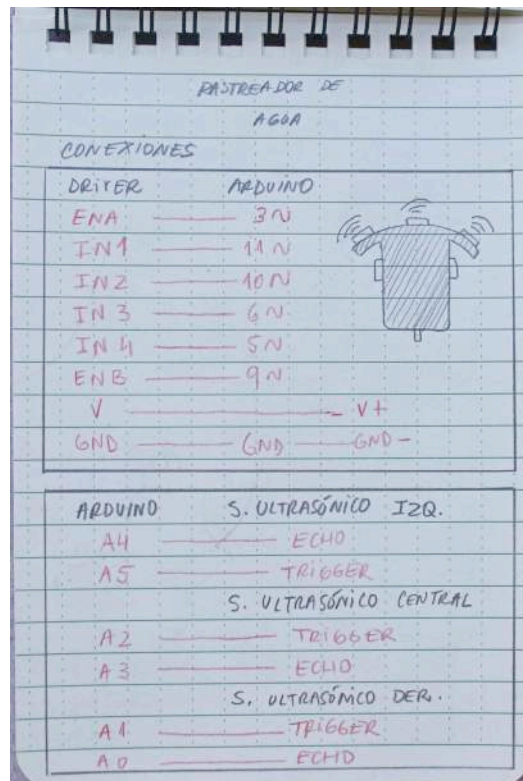 RASTREADOR DE
AGUA
CONEXIONES
DRIVER ARDUINO
ENA 3~
IN1 11~
IN2 10~
IN3 6~
IN4 5~
ENB 9~
V V+
GND GND GND -
ARDUINO S. ULTRASÓNICO IZQ.
A4 ECHO
A5 TRIGGER
S. ULTRASÓNICO CENTRAL
A2 TRIGGER
A3 ECHO
S. ULTRASÓNICO DER.
A1 TRIGGER
A0 ECHO